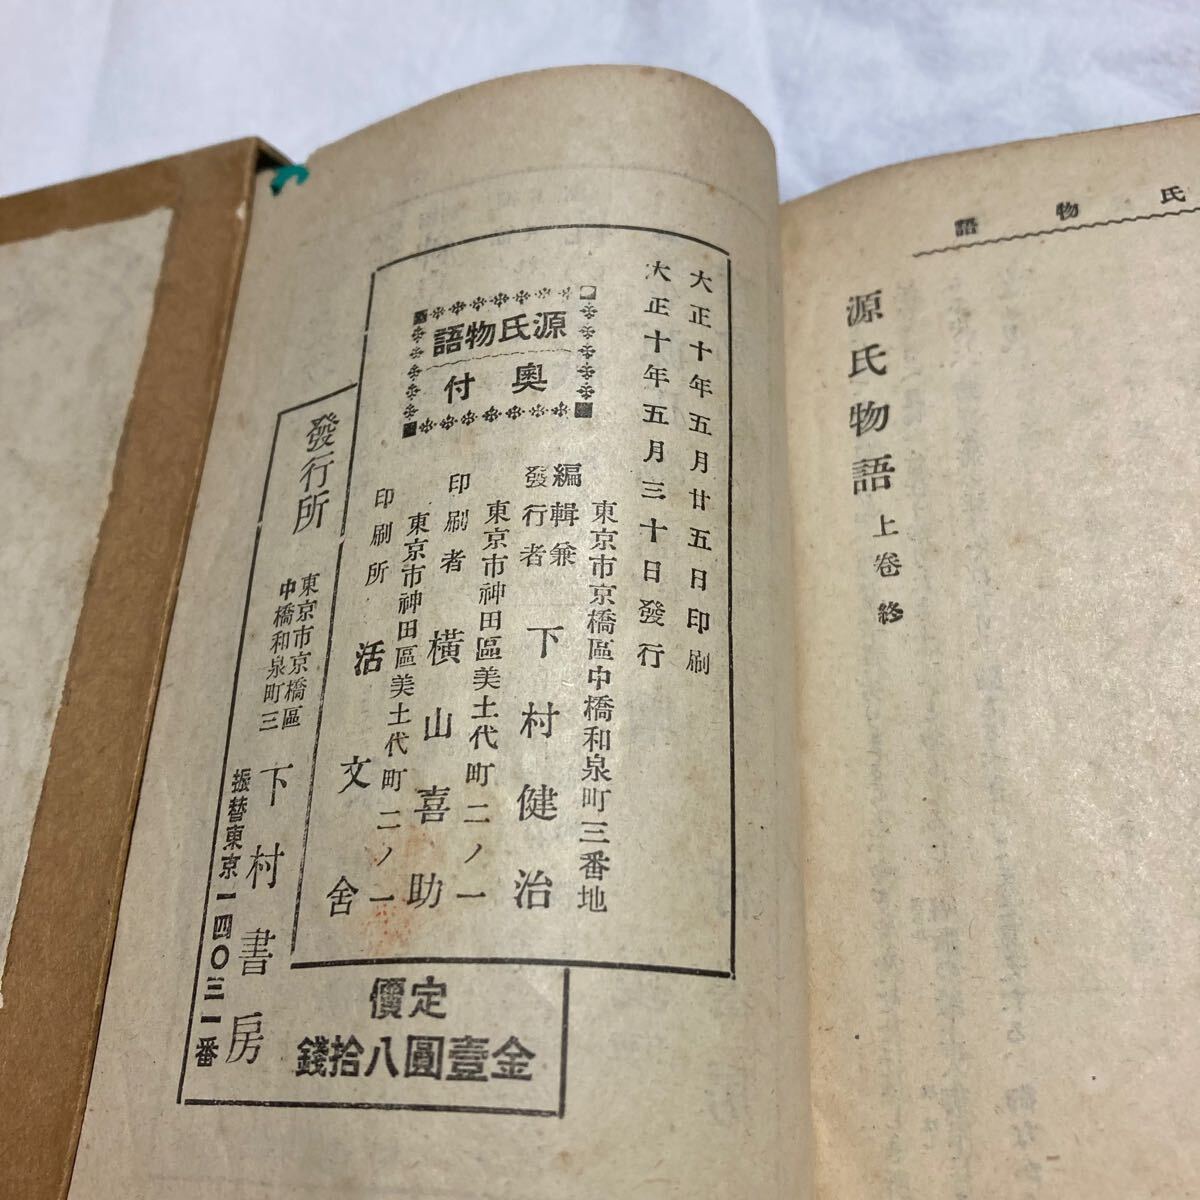 氏物語
源氏物語 上卷 終
大正十年五月廿五日印刷
大正十年五月三十日發行
源氏物語
奧付
東京市京橋區中橋和泉町三番地
編輯兼
發行者 下村健治
東京市神田區美土代町二ノ一
印刷者 橫山喜助
東京市神田區美土代町二ノ一
印刷所 活文舍
發行所
東京市京橋區
中橋和泉町三
下村書房
振替東京一四〇三一番
定價
金壹圓八拾錢